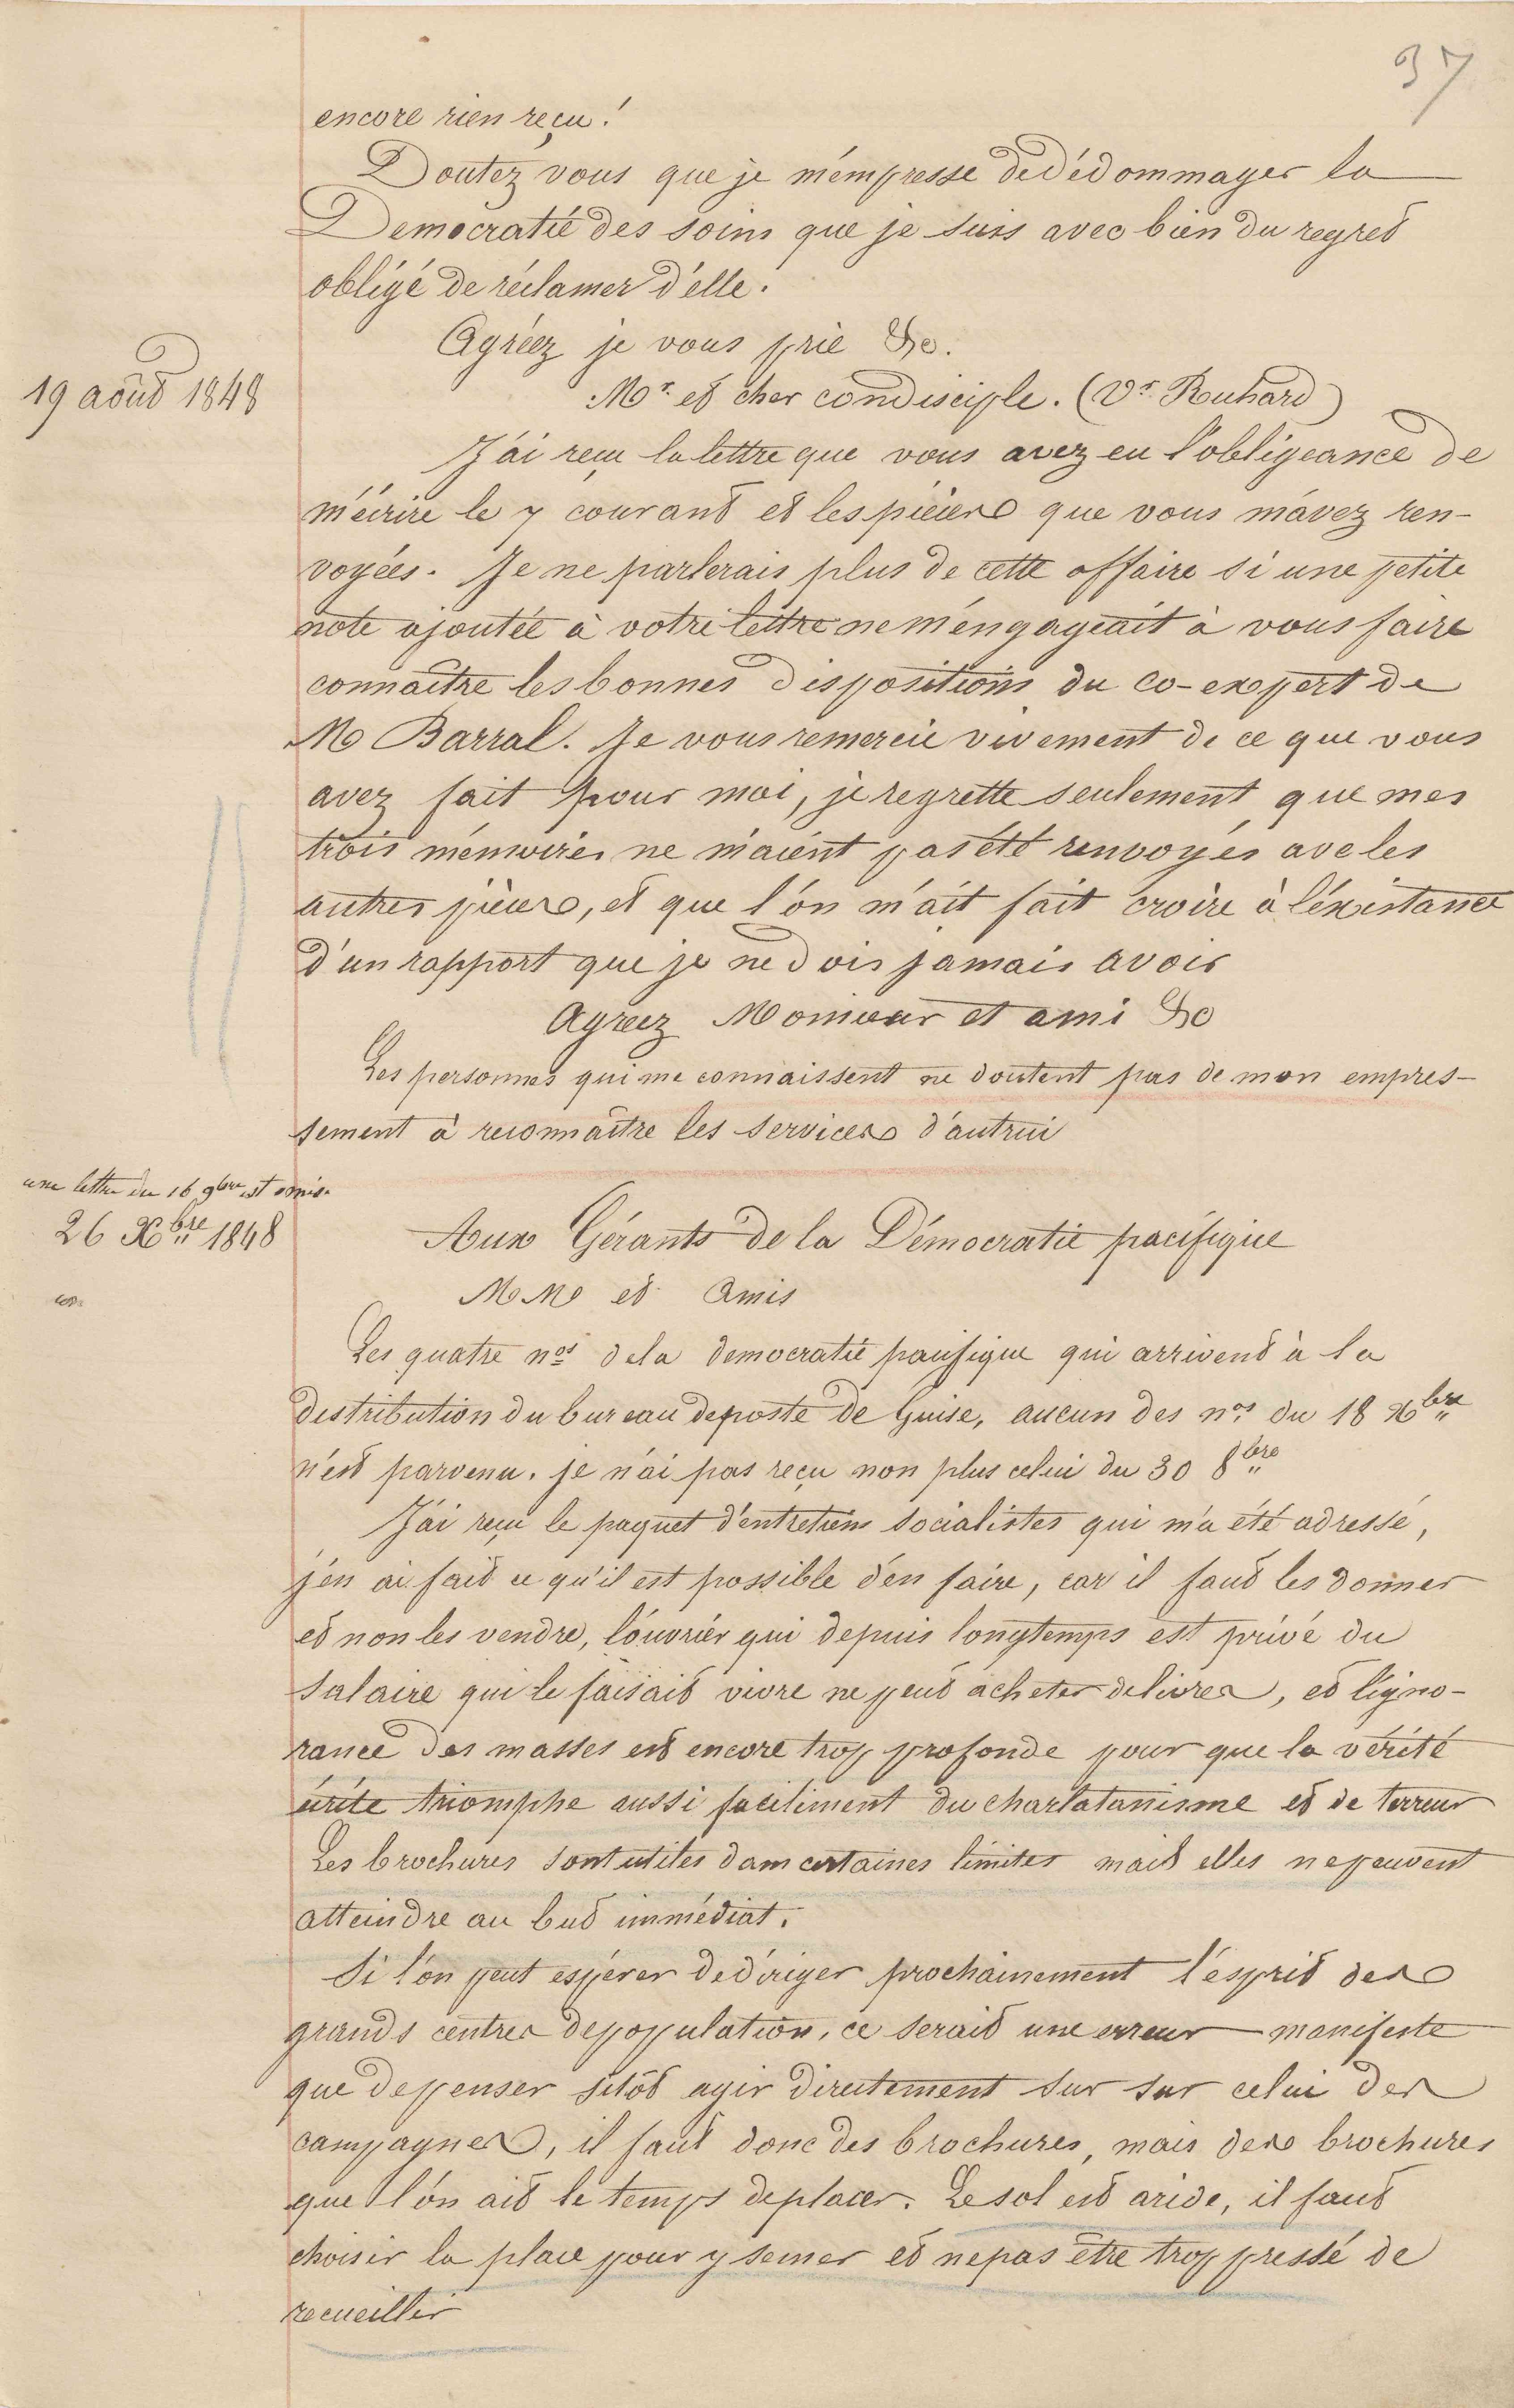 37
encore rien reçu !
Doutez vous que je m'empresse de dédommager la
Democratie des soins que je suis avec bien du regret
obligé de réclamer d'elle.
Agréez je vous prie &c.
19 août 1848
Mr et cher condisciple. (Vr Ruhard)
J'ai reçu la lettre que vous avez eu l'obligeance de
m'écrire le 7 courant et les pièces que vous m'avez ren-
voyées. Je ne parlerais plus de cette affaire si une petite
note ajoutée à votre lettre ne m'engageait à vous faire
connaître les bonnes dispositions du co-expert de
M Barral. Je vous remercie vivement de ce que vous
avez fait pour moi, je regrette seulement que mes
trois mémoires ne m'aient pas été renvoyés ave les
autres pièces, et que l'on m'ait fait croire à l'existance
d'un rapport que je ne dois jamais avoir
Agréez Monsieur et ami &c
Les personnes qui me connaissent ne doutent pas de mon empres-
sement à reconnaître les services d'autrui
une lettre du 16 9bre est omise
26 Xbre 1848
Aux Gérants de la Démocratie pacifique
M M et Amis
Les quatre nos de la democratie pacifique qui arrivent à la
distribution du bureau de poste de Guise, aucun des nos du 18 Xbre
n'est parvenu. je n'ai pas reçu non plus celui du 30 8bre
J'ai reçu le paquet d'entretiens socialistes qui m'a été adressé,
j'en ai fait ce qu'il est possible d'en faire, car il faut les donner
et non les vendre, l'ouvrier qui depuis longtemps est privé du
salaire qui le faisait vivre ne peut acheter de livres, et l'igno-
rance des masses est encore trop profonde pour que la vérité
écrite triomphe aussi facilement du charlatanisme et de terreur
Les brochures sont utiles dans certaines limites mais elles ne peuvent
atteindre au but immédiat.
Si l'on peut espérer de diriger prochainement l'esprit des
grands centres de population, ce serait une erreur manifeste
que de penser sitôt agir directement sur sur celui des
campagnes, il faut donc des brochures, mais des brochures
que l'on ait le temps de placer. Le sol est aride, il faut
choisir la place pour y semer et ne pas être trop pressé de
recueillir